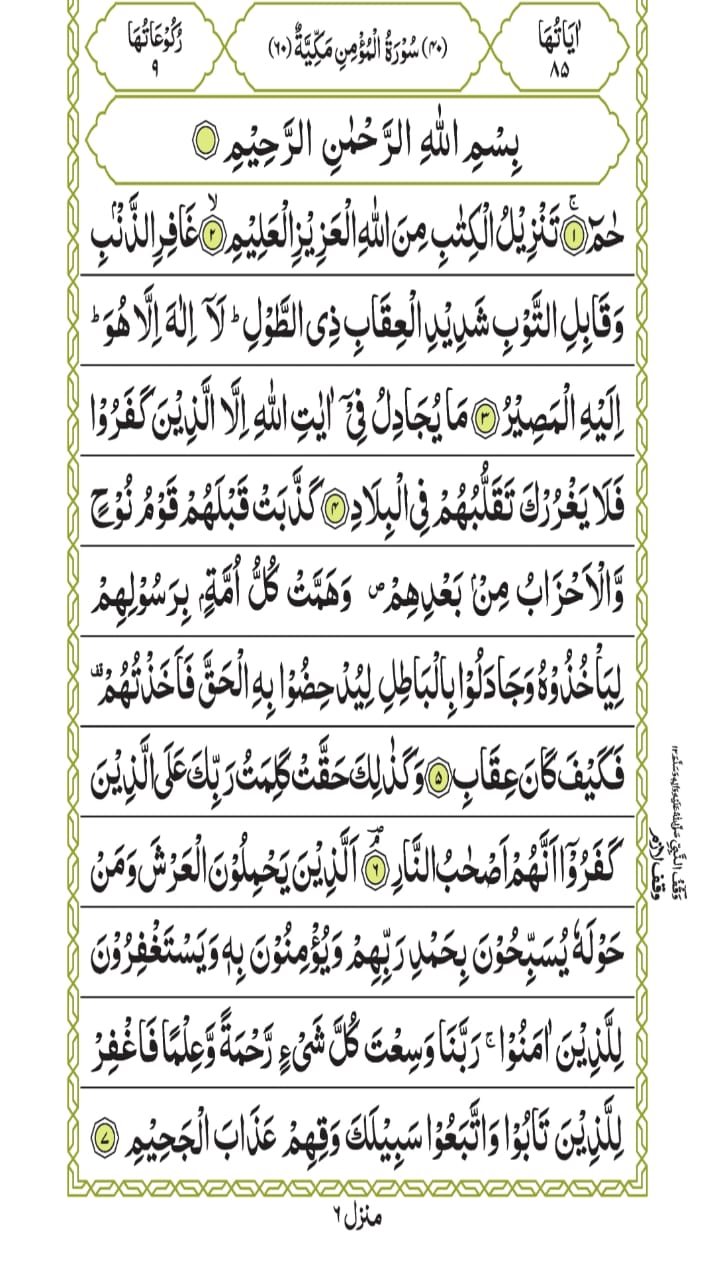 اٰيَاتُهَا ٨٥
(٤٠) سُوْرَةُ الْمُؤْمِنِ مَكِّيَّةٌ (٦٠)
رُكُوْعَاتُهَا ٩
بِسْمِ اللّٰهِ الرَّحْمٰنِ الرَّحِيْمِ
حٰمٓ ۚ﴿١﴾ تَنْزِيْلُ الْكِتٰبِ مِنَ اللّٰهِ الْعَزِيْزِ الْعَلِيْمِ ۙ﴿٢﴾ غَافِرِ الذَّنْۢبِ
وَقَابِلِ التَّوْبِ شَدِيْدِ الْعِقَابِ ذِى الطَّوْلِ ؕ لَاۤ اِلٰهَ اِلَّا هُوَ ؕ
اِلَيْهِ الْمَصِيْرُ ﴿٣﴾ مَا يُجَادِلُ فِىْۤ اٰيٰتِ اللّٰهِ اِلَّا الَّذِيْنَ كَفَرُوْا
فَلَا يَغْرُرْكَ تَقَلُّبُهُمْ فِى الْبِلَادِ ﴿٤﴾ كَذَّبَتْ قَبْلَهُمْ قَوْمُ نُوْحٍ
وَّالْاَحْزَابُ مِنْۢ بَعْدِهِمْ ۪ وَهَمَّتْ كُلُّ اُمَّةٍۭ بِرَسُوْلِهِمْ
لِيَاْخُذُوْهُ وَجَادَلُوْا بِالْبَاطِلِ لِيُدْحِضُوْا بِهِ الْحَقَّ فَاَخَذْتُهُمْ ۟
فَكَيْفَ كَانَ عِقَابِ ﴿٥﴾ وَكَذٰلِكَ حَقَّتْ كَلِمَتُ رَبِّكَ عَلَى الَّذِيْنَ
كَفَرُوْۤا اَنَّهُمْ اَصْحٰبُ النَّارِ ۘؔ﴿٦﴾ اَلَّذِيْنَ يَحْمِلُوْنَ الْعَرْشَ وَمَنْ
حَوْلَهٗ يُسَبِّحُوْنَ بِحَمْدِ رَبِّهِمْ وَيُؤْمِنُوْنَ بِهٖ وَيَسْتَغْفِرُوْنَ
لِلَّذِيْنَ اٰمَنُوْا ۚ رَبَّنَا وَسِعْتَ كُلَّ شَىْءٍ رَّحْمَةً وَّعِلْمًا فَاغْفِرْ
لِلَّذِيْنَ تَابُوْا وَاتَّبَعُوْا سَبِيْلَكَ وَقِهِمْ عَذَابَ الْجَحِيْمِ ﴿٧﴾
وَقْفُ النَّبِيِّ
وقف لازم
منزل ٦